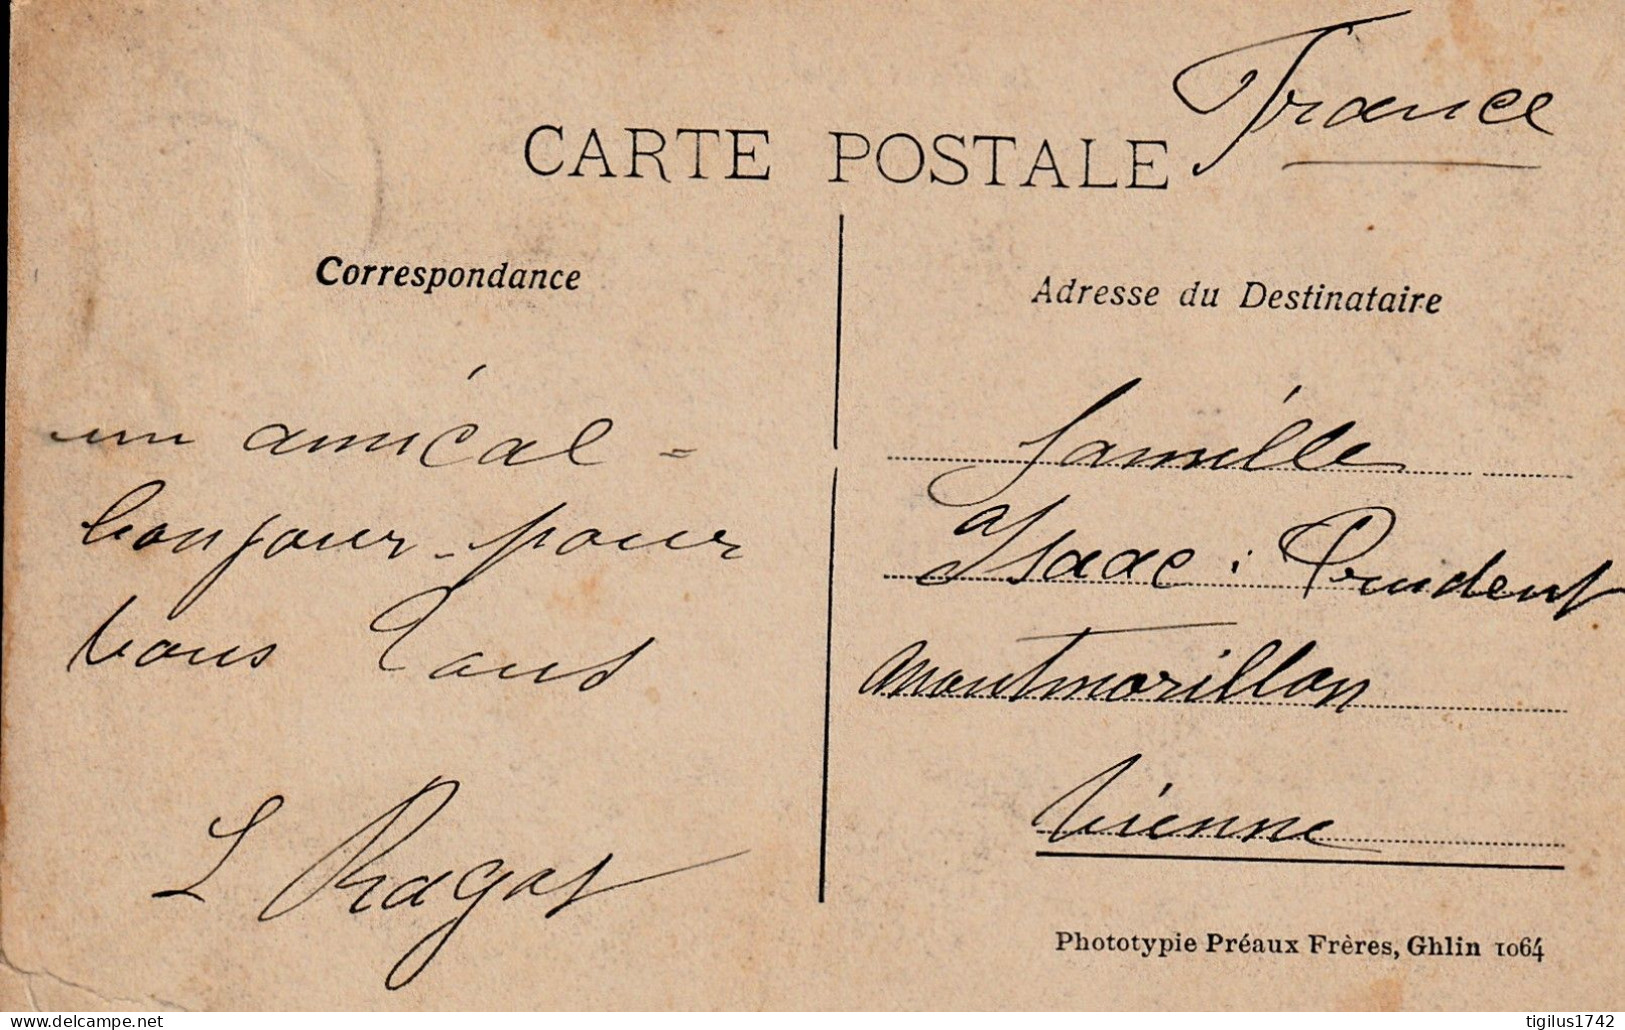 France
CARTE POSTALE
Correspondance
un amical -
bonjour - pour
vous tous
L Ragot
Adresse du Destinataire
famille
Isaac : Prudent
Montmorillon
Vienne
Phototypie Préaux Frères, Ghlin 1064
www.delcampe.net
tigilus1742